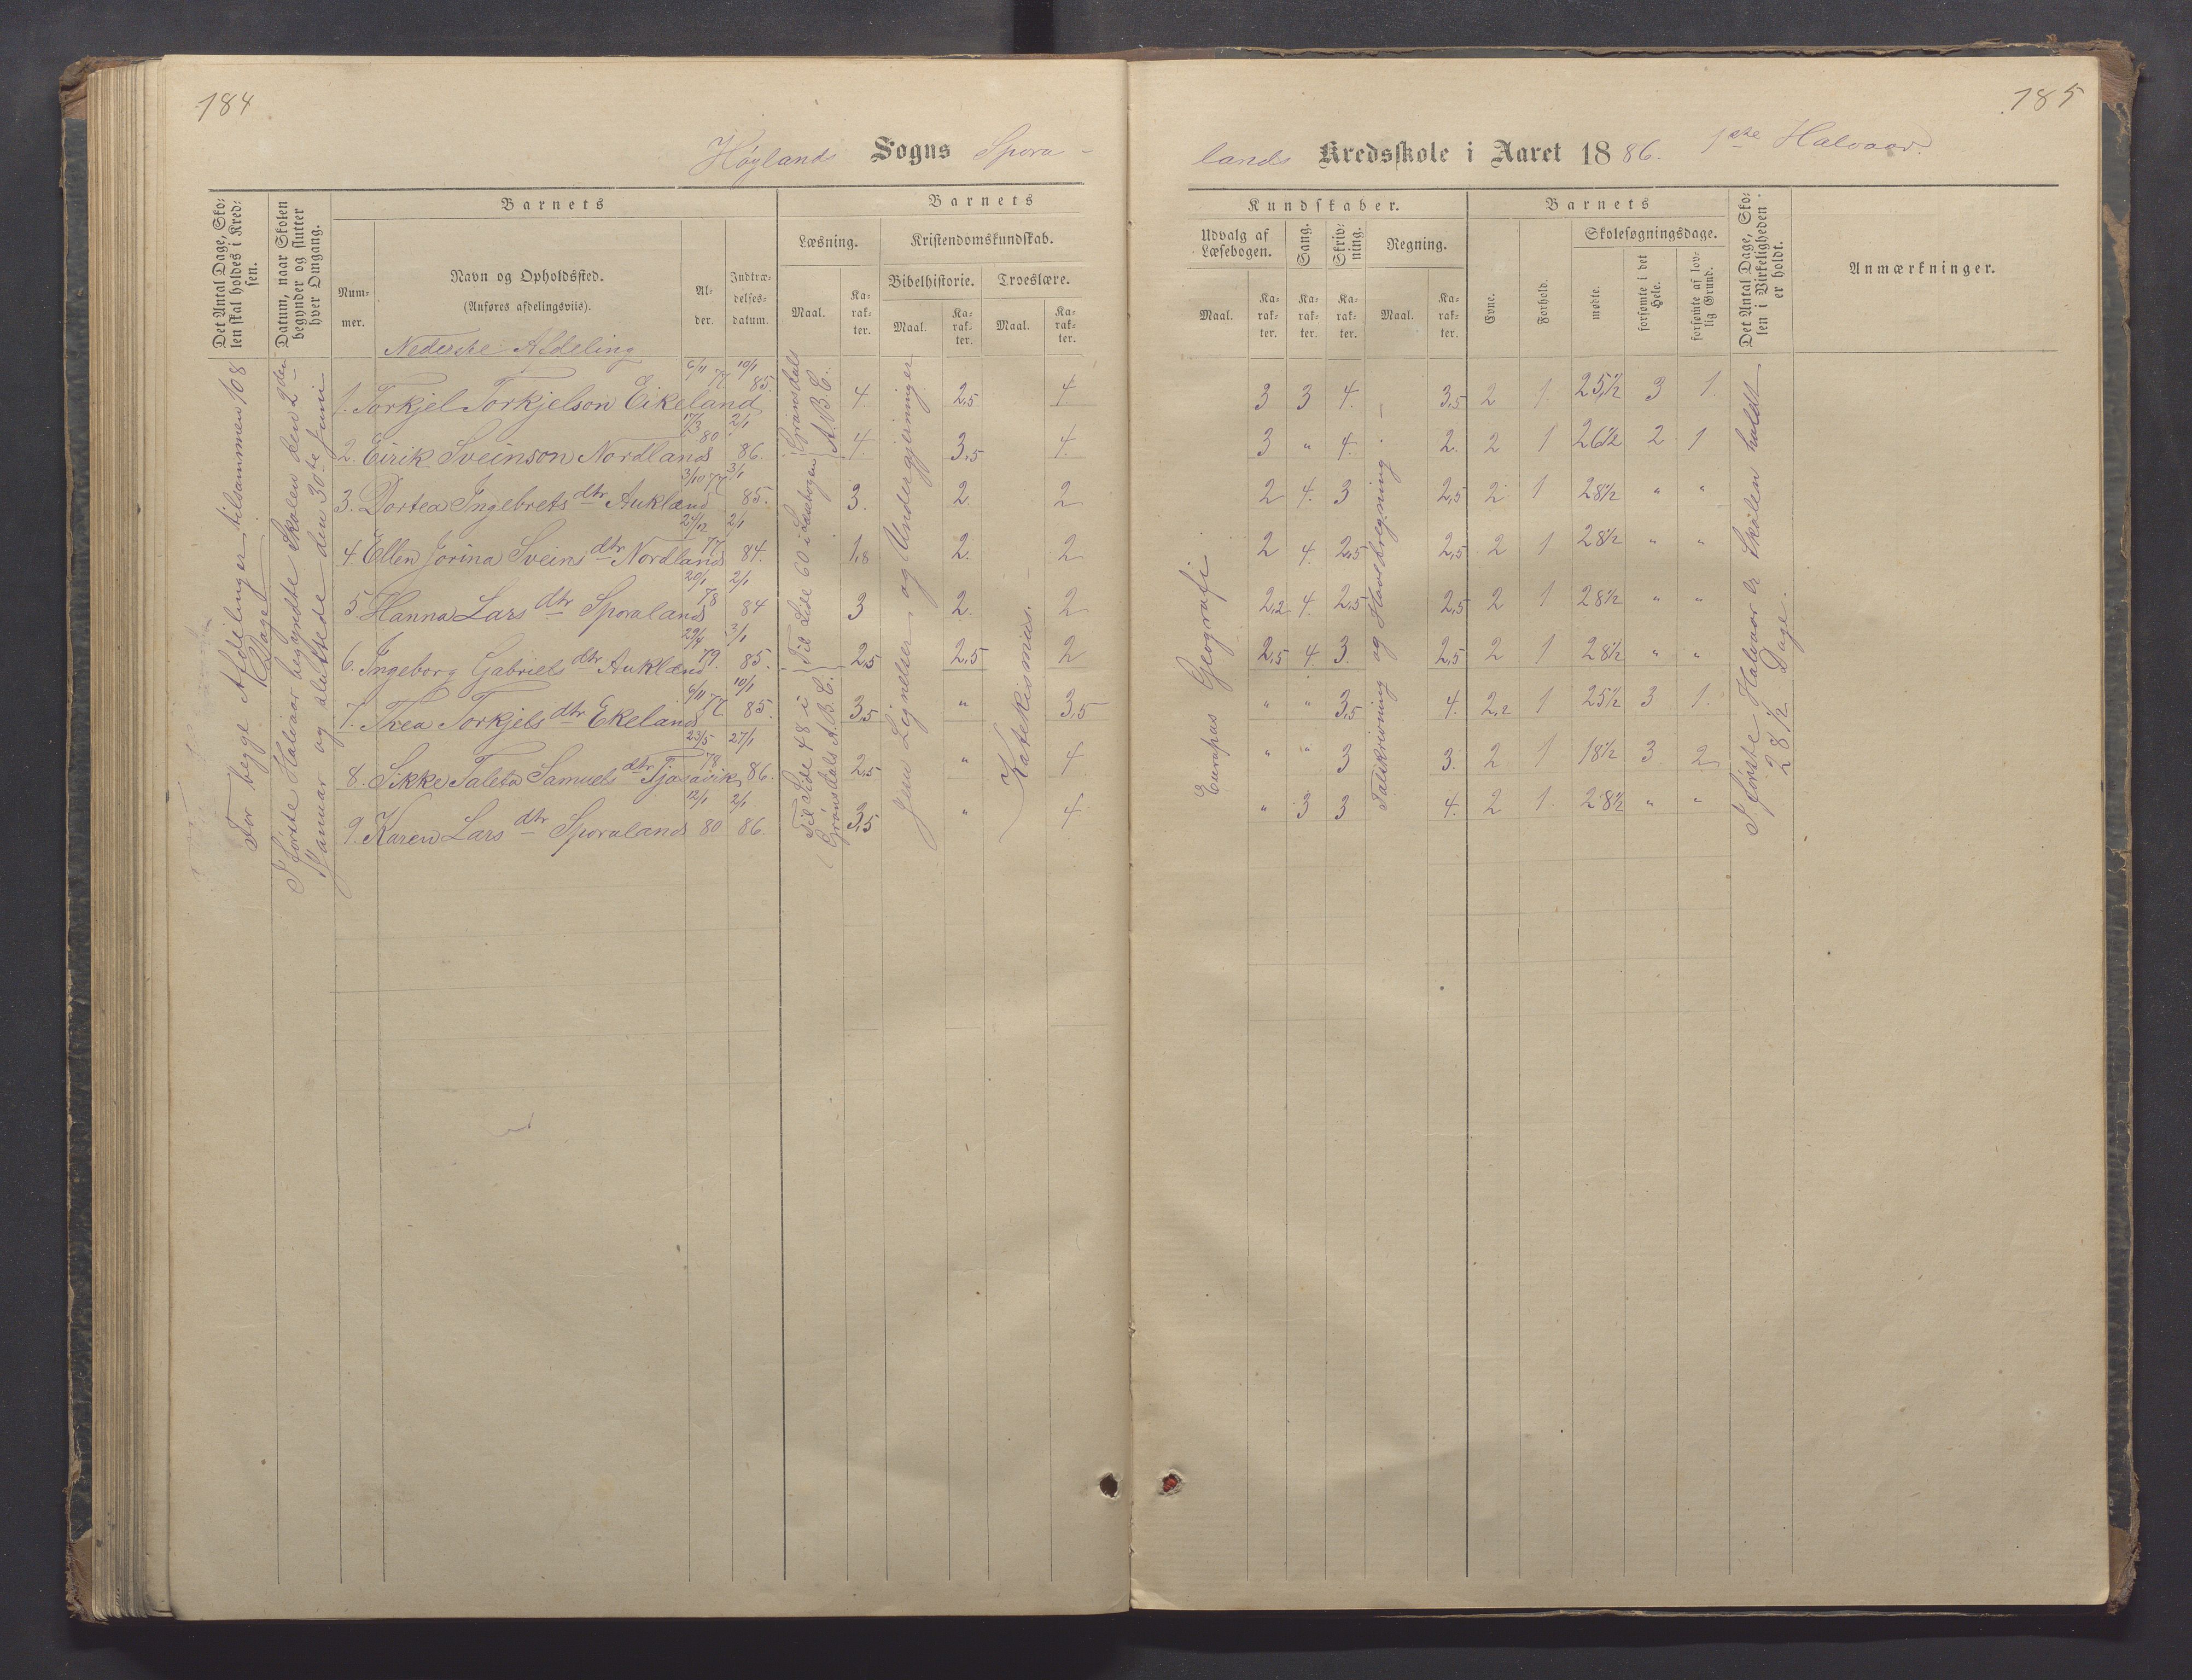 184
Høylands Sogns Spora-
Det Antal Dage, Sko-
len skal holdes i Kred-
sen.
Datum, naar Skolen
begynder og slutter
hver Omgang.
Barnets
Num-
mer.
Navn og Opholdssted.
(Anføres afdelingsviis).
Al-
der.
Indtræ-
delses-
datum.
Barnets
Læsning.
Maal.
Ka-
rak-
ter.
Kristendomskundskab.
Bibelhistorie.
Maal.
Ka-
rak-
ter.
Troeslære.
Maal.
Ka-
rak-
ter.
For begge Afdelinger tilsammen 108
Dage
I første Halvaar begyndte Skolen den 2den
Januar og sluttede den 30te Juni
Nederste Afdeling
1. Torkjel Torkjelson Eikeland 6/11 77 10/1 85. 4. 2,5 4
2. Eirik Sveinson Nordland 17/3 80 2/1 86. 4. 3,5 4.
3. Dortea Ingebrets dtr Aukland 3/10 77 3/1 85. 3. 2. 2
4. Ellen Jorina Sveins dtr Nordland 24/12 77 2/1 84. 1,8 2. 2
5. Hanna Lars dtr Sporaland 20/1 78 2/1 84 3 2. 2
6. Ingeborg Gabriels dtr Aukland 29/4 79. 3/1 85. 2,5 2,5 2
7. Thea Torkjels dtr Ekeland 6/11 77 10/1 85. 3,5 " 3,5
8. Sikke Taleta Samuels dtr Tjaravik 23/5 78 27/1 86. 2,5 " 4
9. Karen Lars dtr Sporaland 12/1 80 2/1 86. 3,5 " 4
Grønsdals
A.B.C.
Til Side 60 i Læsebogen
Til Side 48 i
Grønsdals A.B.C.
Jesu Lignelser og Undergjerninger
Katekismus.
185
lands Kredsskole i Aaret 1886. 1ste Halvaar.
Kundskaber.
Udvalg af
Læsebogen.
Maal.
Ka-
rak-
ter.
Sang.
Ka-
rak-
ter.
Skriv-
ning.
Ka-
rak-
ter.
Regning.
Maal.
Ka-
rak-
ter.
Barnets
Evne.
Forhold.
Skolesøgningsdage.
mødte.
forsømte i det
Hele.
forsømte af lov-
lig Grund.
Det Antal Dage, Sko-
len i Virkeligheden
er holdt.
Anmærkninger.
3 3 4. 3,5 2 1 25½ 3 1.
3 " 4. 2. 2 1 26½ 2 1
2 4. 3 2,5 2 1 28½ " "
2 4. 2,5 2,5 2 1 28½ " "
2,2 4. 2,5 2,5 2 1 28½ " "
2,5 4. 3. 2,5 2 1 28½ " "
" " 3,5 4. 2,2 1 25½ 3 1.
" " 3 3. 2 1 18½ 3 2
" 3 3 4. 2 1 28½ " "
Europas Geografi
Talskrivning og Hovedregning
I første Halvaar er Skolen holdt
28½ Dage.